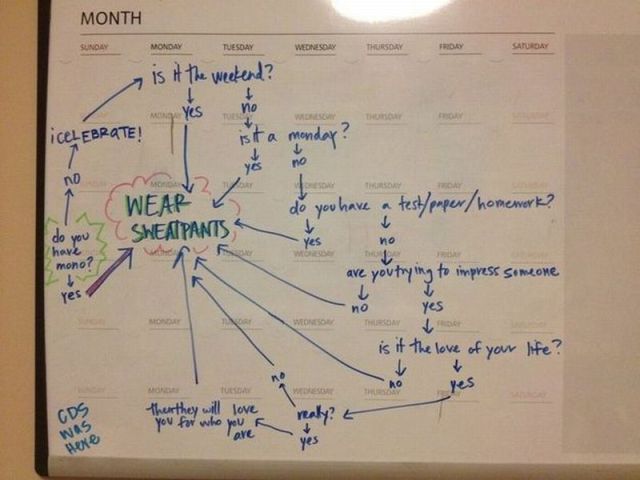 MONTH
SUNDAY MONDAY TUESDAY WEDNESDAY THURSDAY FRIDAY SATURDAY
is it the weekend?
yes
no
MONDAY TUESDAY WEDNESDAY THURSDAY FRIDAY SATURDAY
¡CELEBRATE!
is it a monday?
yes
no
no
MONDAY TUESDAY WEDNESDAY THURSDAY FRIDAY SATURDAY
WEAR
SWEATPANTS
do you have a test/paper/homework?
yes
no
do you
have
mono?
yes
MONDAY TUESDAY WEDNESDAY THURSDAY FRIDAY SATURDAY
are you trying to impress someone
no
yes
SUNDAY MONDAY TUESDAY WEDNESDAY THURSDAY FRIDAY SATURDAY
is it the love of your life?
no
yes
no
SUNDAY MONDAY TUESDAY WEDNESDAY THURSDAY SATURDAY
really?
yes
then they will love
you for who you
are
CDS
was
Here